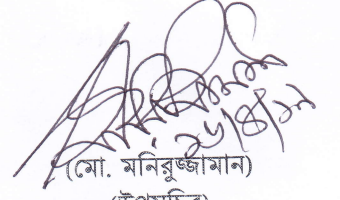 ২৬/৪/১৭
(মো. মনিরুজ্জামান)
(উপসচিব)